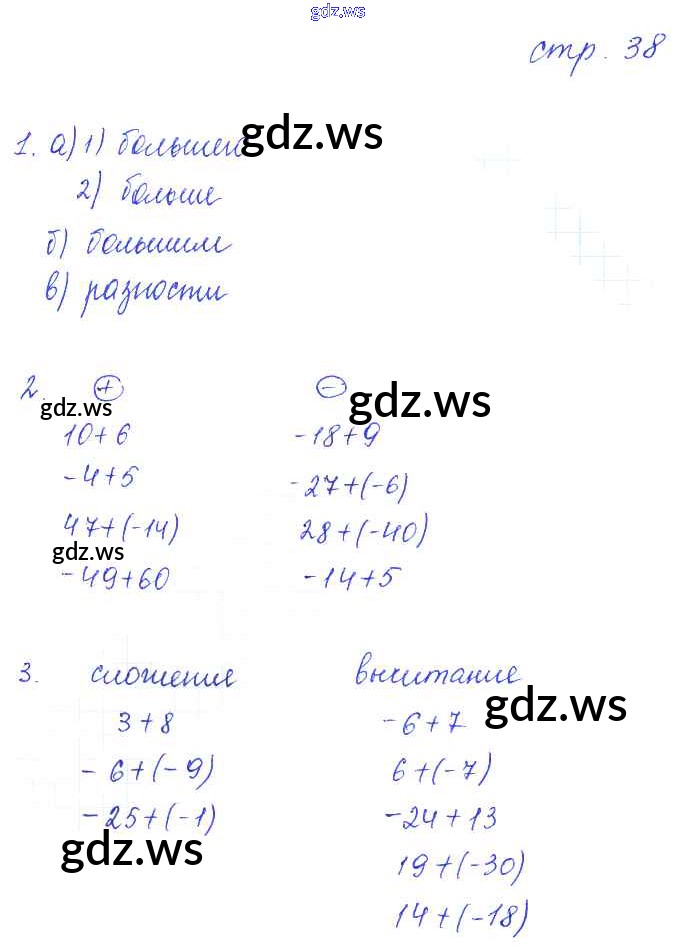 gdz.ws
стр. 38
gdz.ws
1. а) 1)
2) больше
б) большим
в) разности
2. + −
gdz.ws gdz.ws
10+6 -18+9
-4+5 -27+(-6)
47+(-14) 28+(-40)
gdz.ws
-49+60 -14+5
3. сложение вычитание
gdz.ws
3+8 -6+7
-6+(-9) 6+(-7)
-25+(-1) -24+13
gdz.ws
19+(-30)
14+(-18)